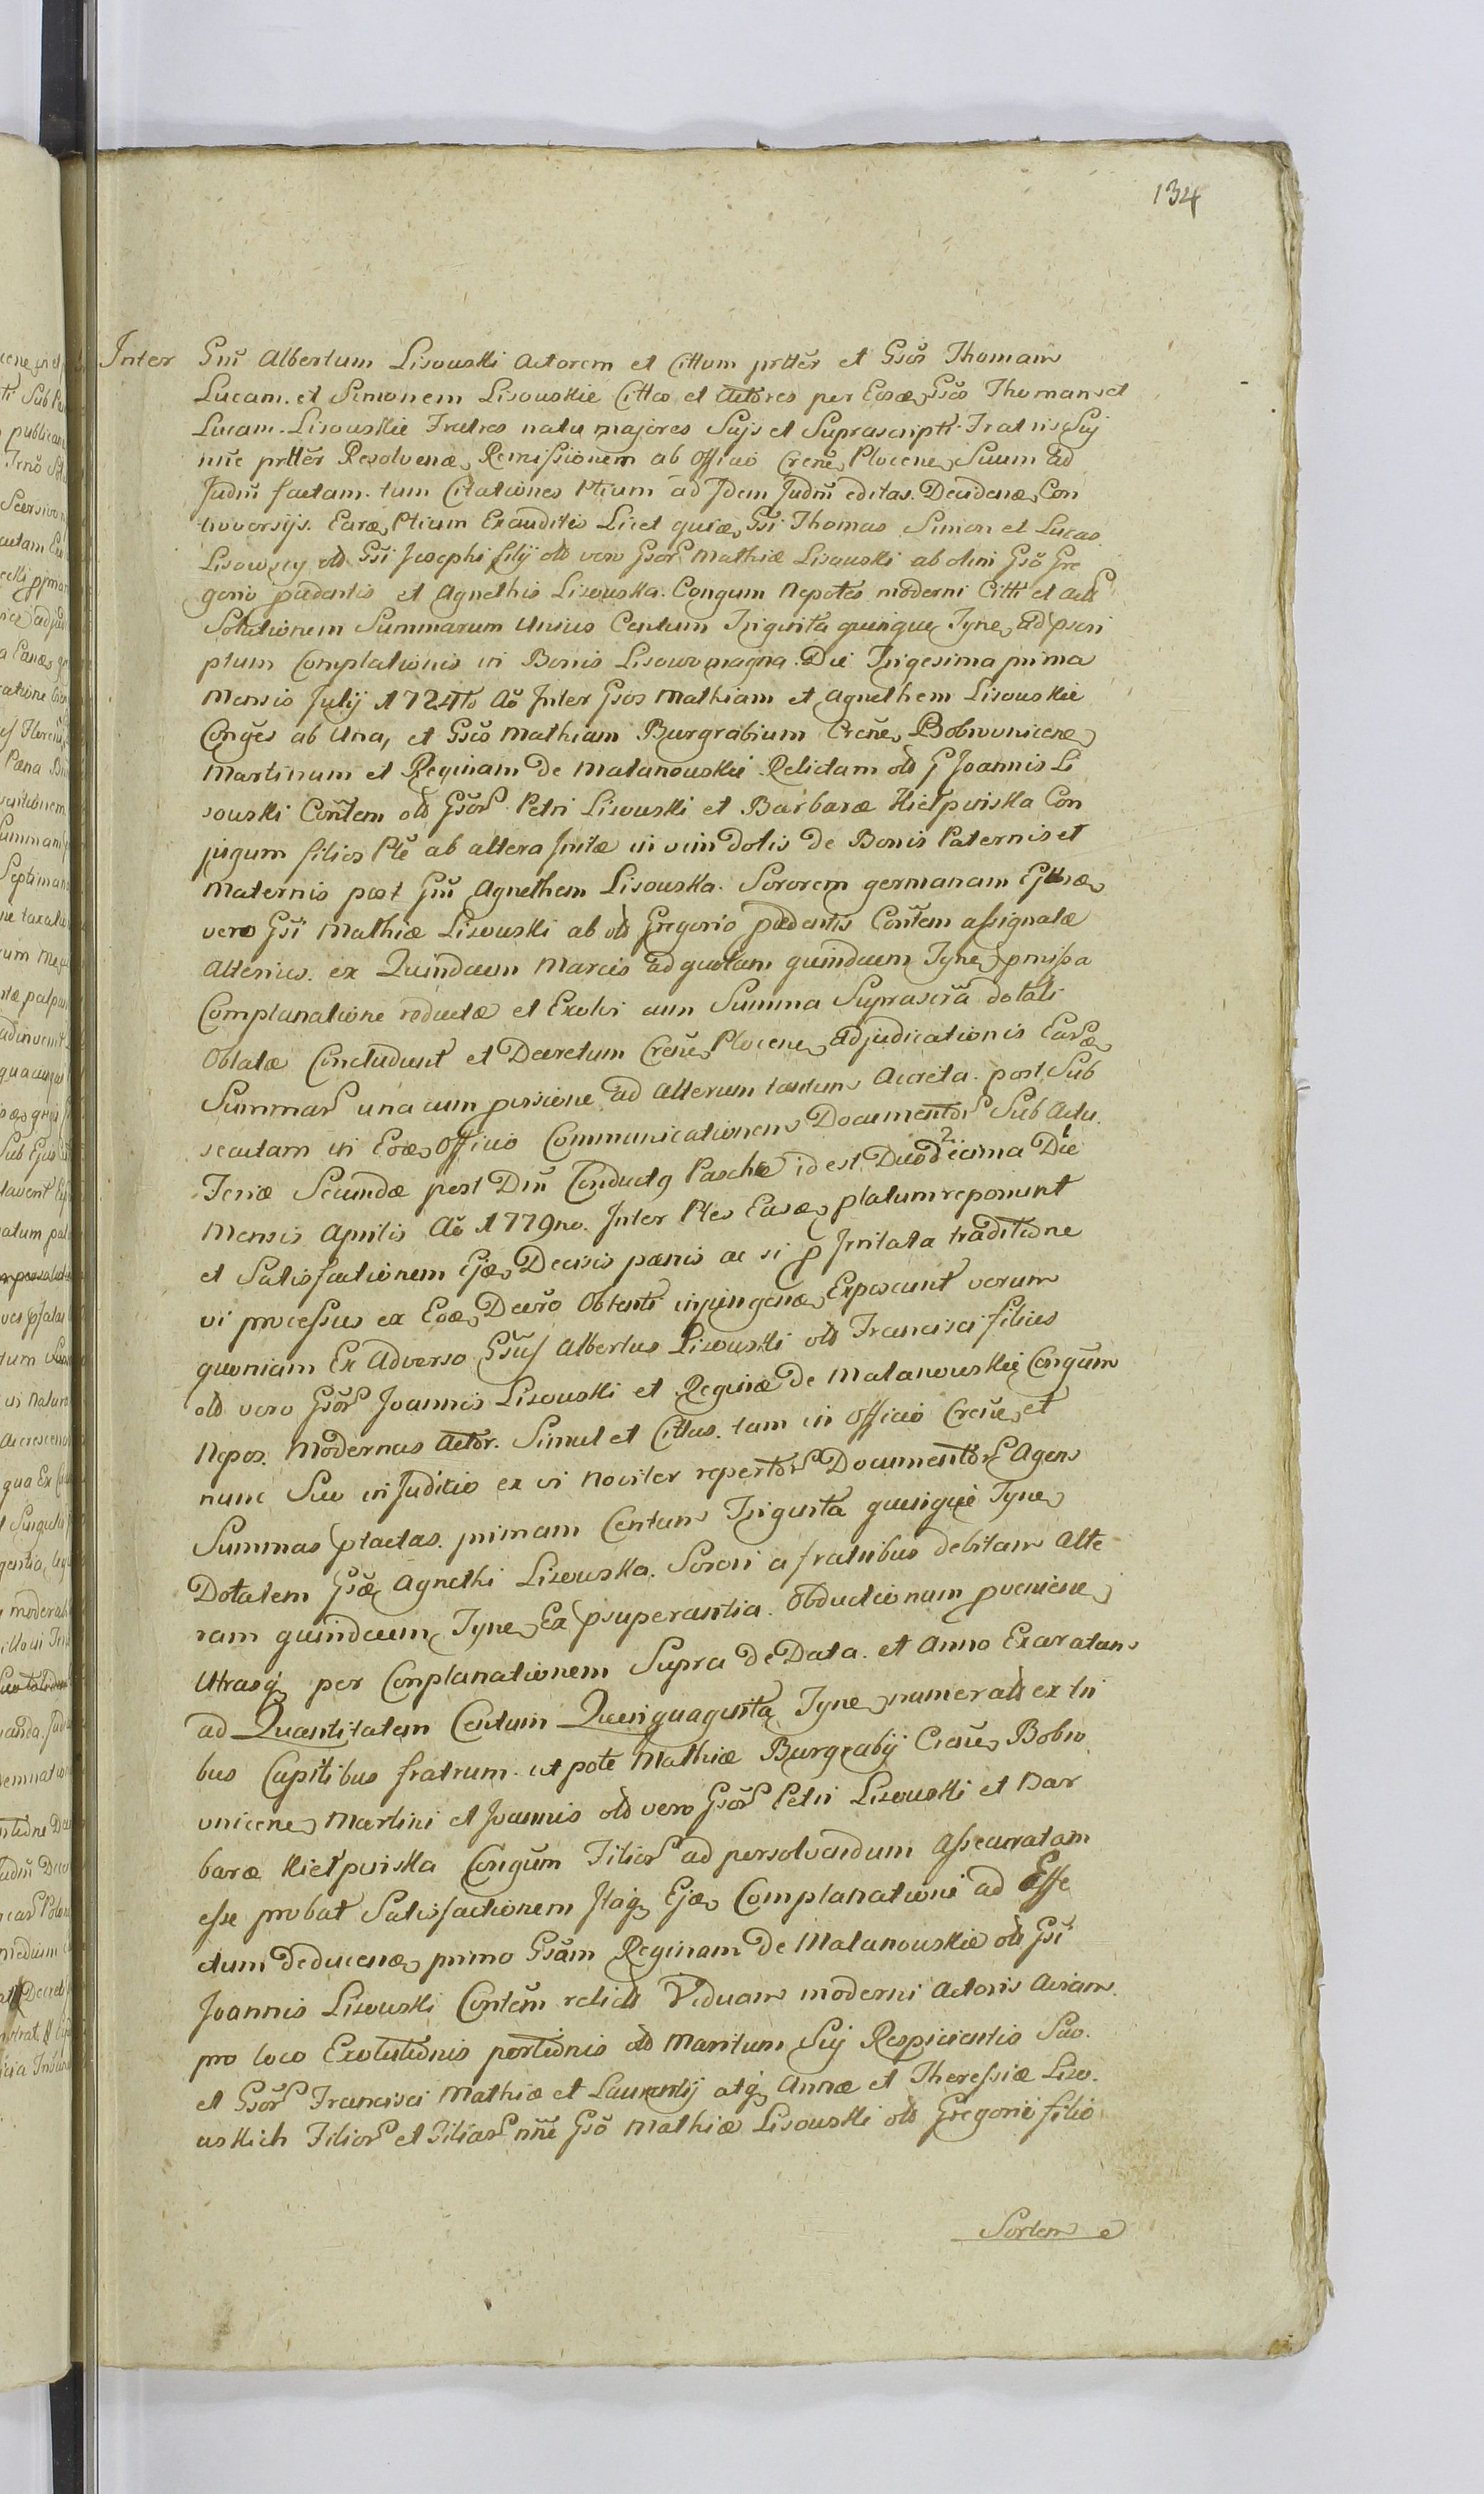 134
Inter Gnu Albertum Lisowski Actorem et Cittum prttėr et Gsos Thomam
Lucam. et Simonem Lisowskie Cittos et Actores per Eosæ Gsos Thomam et
Lucam. Lisowskie Fratres natu majores Sujs et Suprascriptt. Fratris Suj
nnė prttėr Resolvenæ Remissionem ab Officio Crenė Plocene Suum ad
Judm factam. tum Citationes Ptium ad Idem Judm editas. Decidenæ Con
troversijs. Earæ Ptium Exauditis Licet quiæ Gsi Thomas Simon et Lucas
Lisowscy old Gsi Josephi filij old vero Gsor Mathiæ Lisowski ab olim Gso Gre
gorio pcedentis et Agnethis Lisowska. Congum Nepotes moderni Citti et act
Solutionem Summarum Unius Centum Triginta quinque Tyne ad pscri
ptum Complationis in Bonis Lisowo magna. Die Trigesima prima
Mensis Julij 1724to Ao Inter Gsos Mathiam et Agnethem Lisowskie
Conges ab Una, et Gso Mathiam Burgrabium Crenė Bobrownicene
Martinum et Reginam de Malanowskie Relictam old G Joannis Li
sowski Contem old Gsor Petri Lisowski et Barbaræ Kiełpińska Con
jugum filios Pte ab altera Initæ in vim dotis de Bonis Paternis et
Maternis post Gnu Agnethem Lisowska. Sororem germanam Ejusæ
vero Gsi Mathiæ Lisowski ab old Gregorio pcedentis Contem assignatæ
Alterius. ex Quindecim Marcis ad quotam quindecim Tyne pmissa
Complanatione reductæ et Exolvi cum Summa Suprascra dotali
Oblatæ Concludunt et Decretum Crenė Plocene Adjudicationis Earæ
Summar una cum pssione ad Alterum tantum Accreta. post Sub
secutam in Eoæ Officio Communicationem Documentor Sub Actu.
Feriæ Secundæ post Dnu Conductg Paschæ id est Duodecima Die
Mensis Aprilis Ao 1779no. Inter Ptes Easæ platum reponunt
et Satisfactionem Ejæ Decisis pænis ac si p Irritata traditione
vi processus ex Eoæ Decro Obtenti injungenæ Exposcunt verum
quoniam Ex Adverso Gsus Albertus Lisowski old Francisci filius
old vero Gsor Joannis Lisowski et Reginæ de Malanowskie Congum
Nepos. Modernus Actor. Simul et Cittus. tam in Officio Crenė et
nunc Suo in Juditio ex vi Noviter repertor Documentor Agens
Summas ptactas. primam Centum Triginta quinque Tyne
Dotalem Gsæ Agnethi Lisowska. Sorori a fratribus debitam Alte
ram quindecim Tyne Ex psuperantia. Obductionum pveniene
Utrasq per Complanationem Supra de Data. et Anno Exaratam
ad Quantitatem Centum Quinquaginta Tyne numerali ex tri
bus Capitibus fratrum. ut pote Mathiæ Burgrabij Crenė Bobro
wnicene Martini et Joannis old vero Gsor Petri Lisowski et Bar
baræ Kiełpińska Congum Filior ad persolvendum Assecuratam
esse probat Satisfactionem Itaq Ejæ Complanationi ad Effe
ctum deducenæ primo Gsam Reginam de Malanowskie old Gsi
Joannis Lisowski Contem relict Viduam moderni Actoris Aviam.
pro loco Exolutionis portionis old Maritum Suj Respicientis Suo.
et Gsor Francisci Mathiæ et Laurentij atq Annæ et Theressiæ Liso.
wskich Filior et Filiar nne Gso Mathiæ Lisowski old Gregorio filio
Sortem